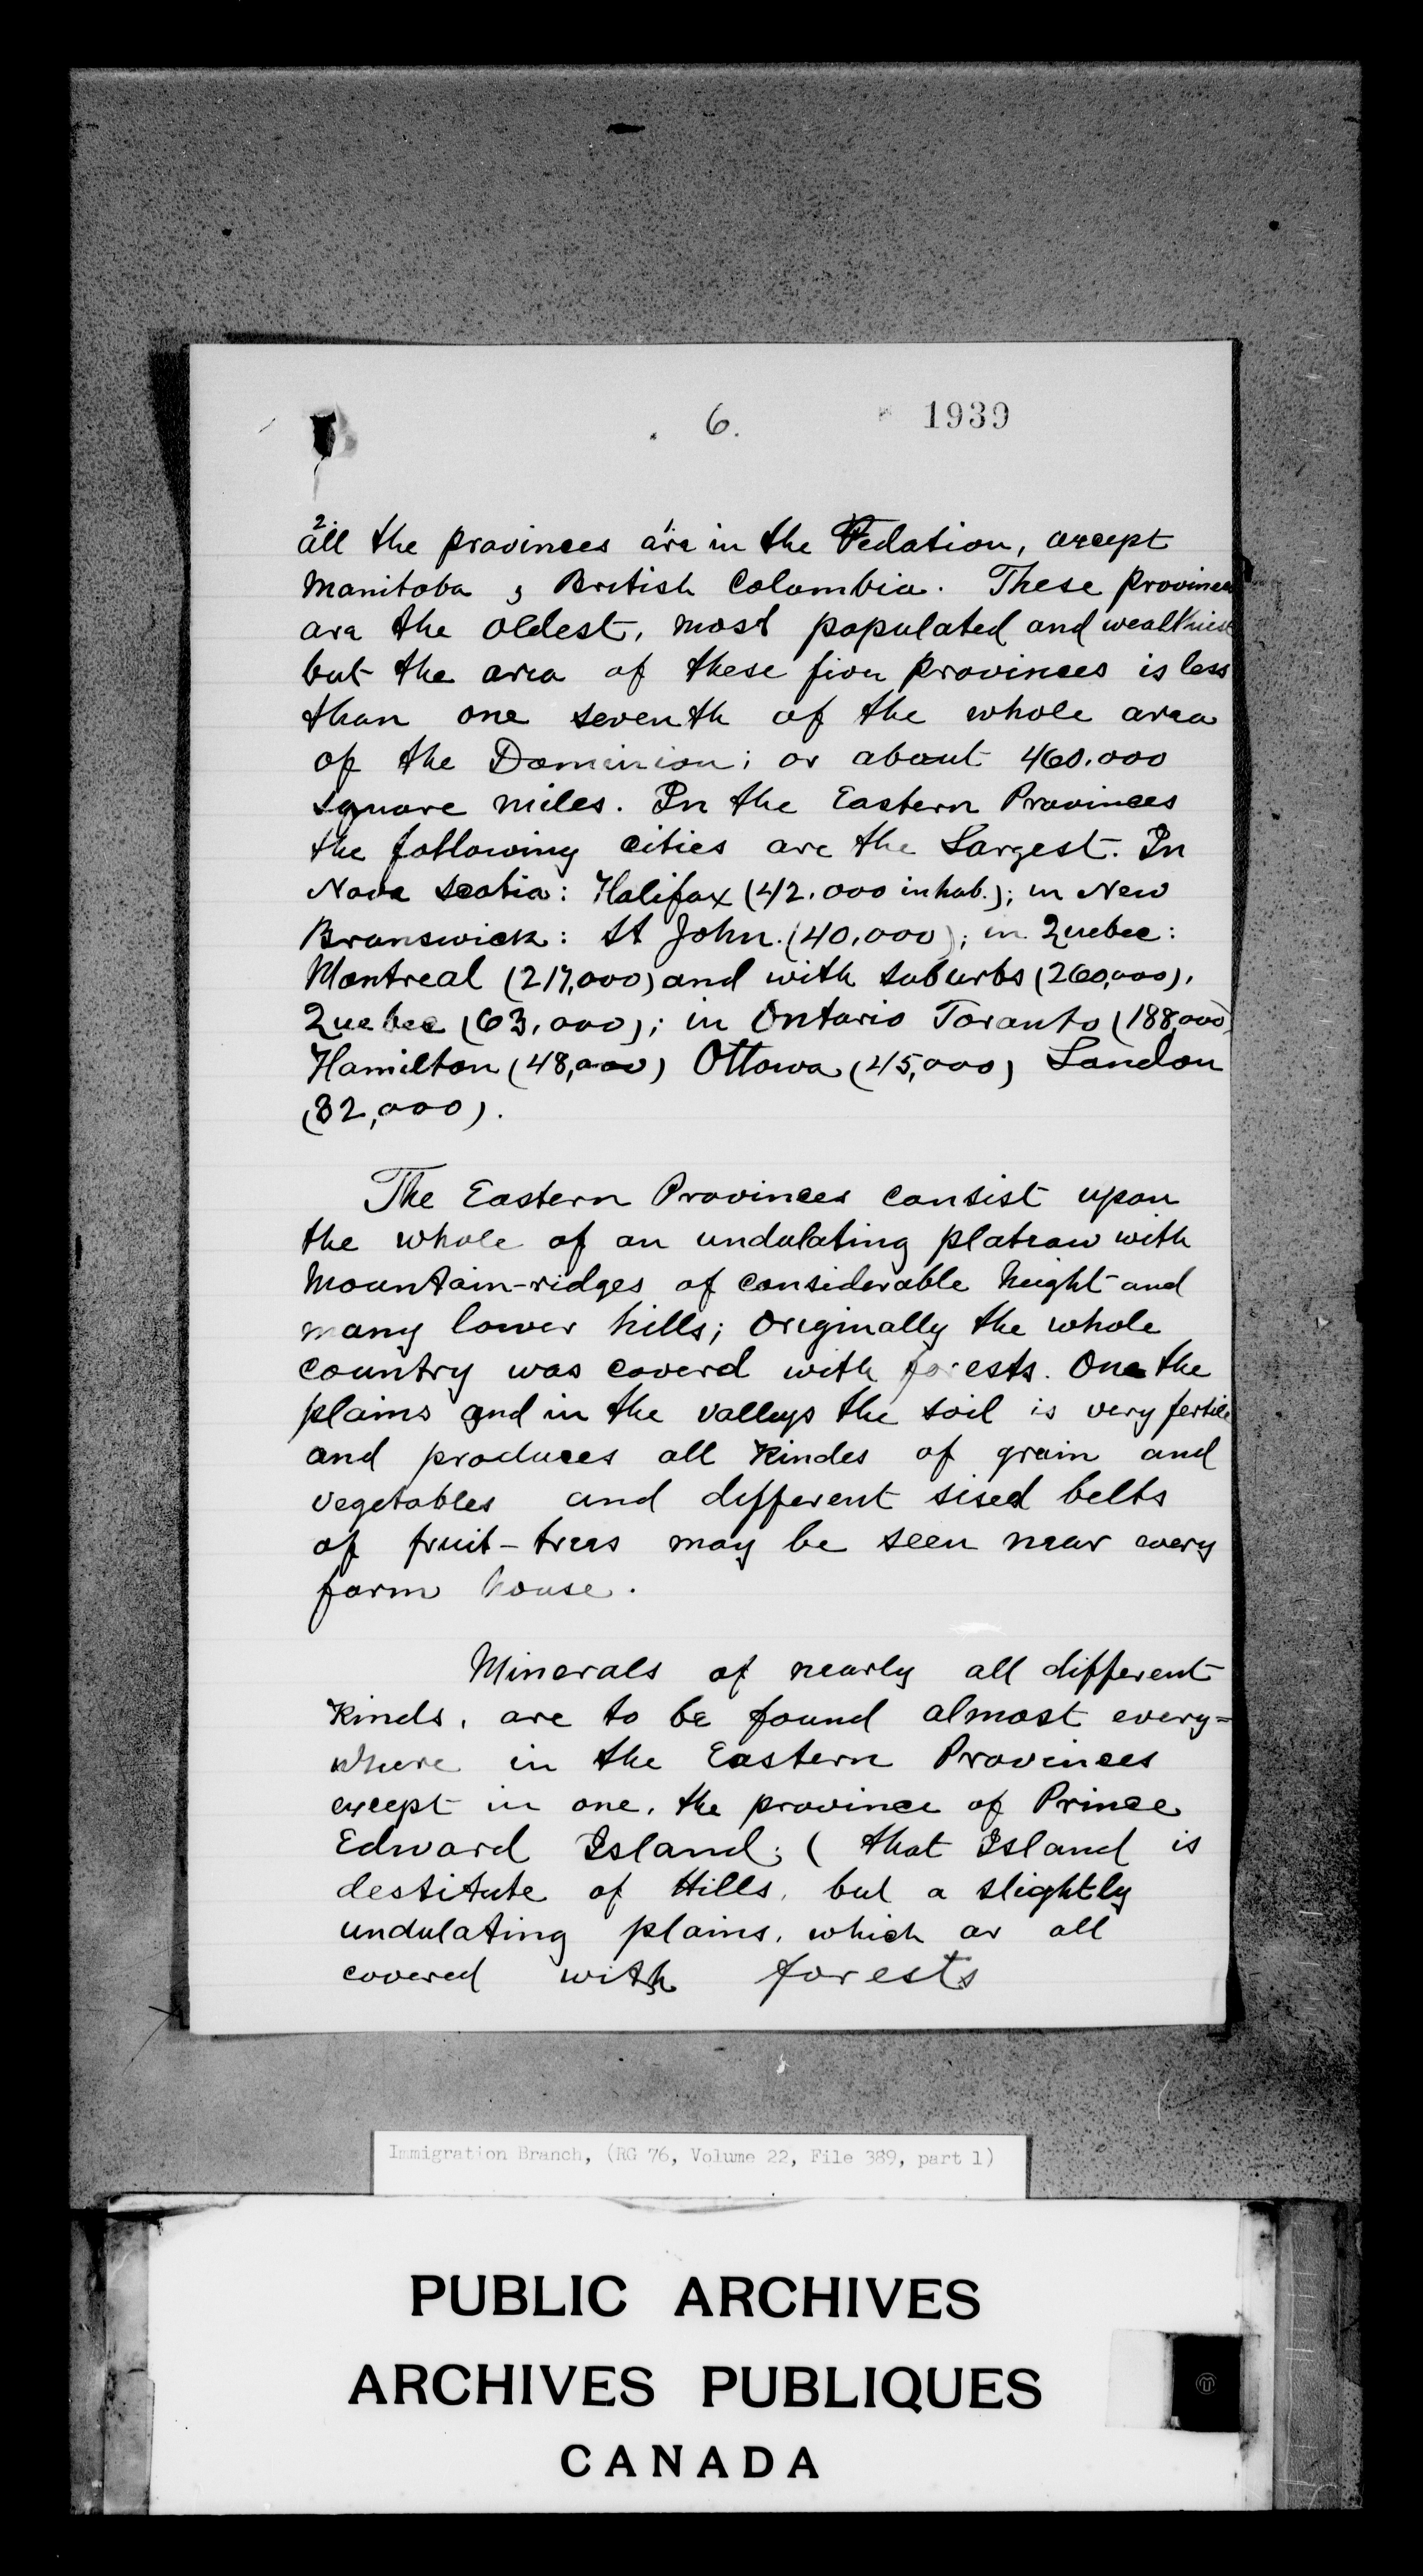 6.
1939
2. 1.
all the provinces are in the Fedation, except
Manitoba & British Columbia. These provinces
are the oldest, most populated and wealthiest
but the area of these five provinces is less
than one seventh of the whole area
of the Dominion; or about 460.000
square miles. In the Eastern Provinces
the following cities are the Largest. In
Nova Scotia: Halifax (42.000 inhab.); in New
Brunswick: St John. (40,000); in Quebec:
Montreal (217,000) and with suburbs (260,000),
Quebec (63,000); in Ontario Toronto (188,000)
Hamilton (48,000) Ottowa (45,000) London
(32,000).
The Eastern Provinces consist upon
the whole of an undulating plateau with
Mountain-ridges of considerable height and
many lower hills; Originally the whole
country was coverd with forests. One the
plains and in the valleys the soil is very fertile
and produces all kindes of grain and
vegetables and different sised belts
of fruit-trees may be seen near every
farm house.
Minerals of nearly all different
kinds, are to be found almost every=
where in the Eastern Provinces
except in one, the province of Prince
Edward Island; ( that Island is
destitute of Hills, but a slightly
undulating plains, which ar all
covered with forests
Immigration Branch, (RG 76, Volume 22, File 389, part 1)
PUBLIC ARCHIVES
ARCHIVES PUBLIQUES
CANADA